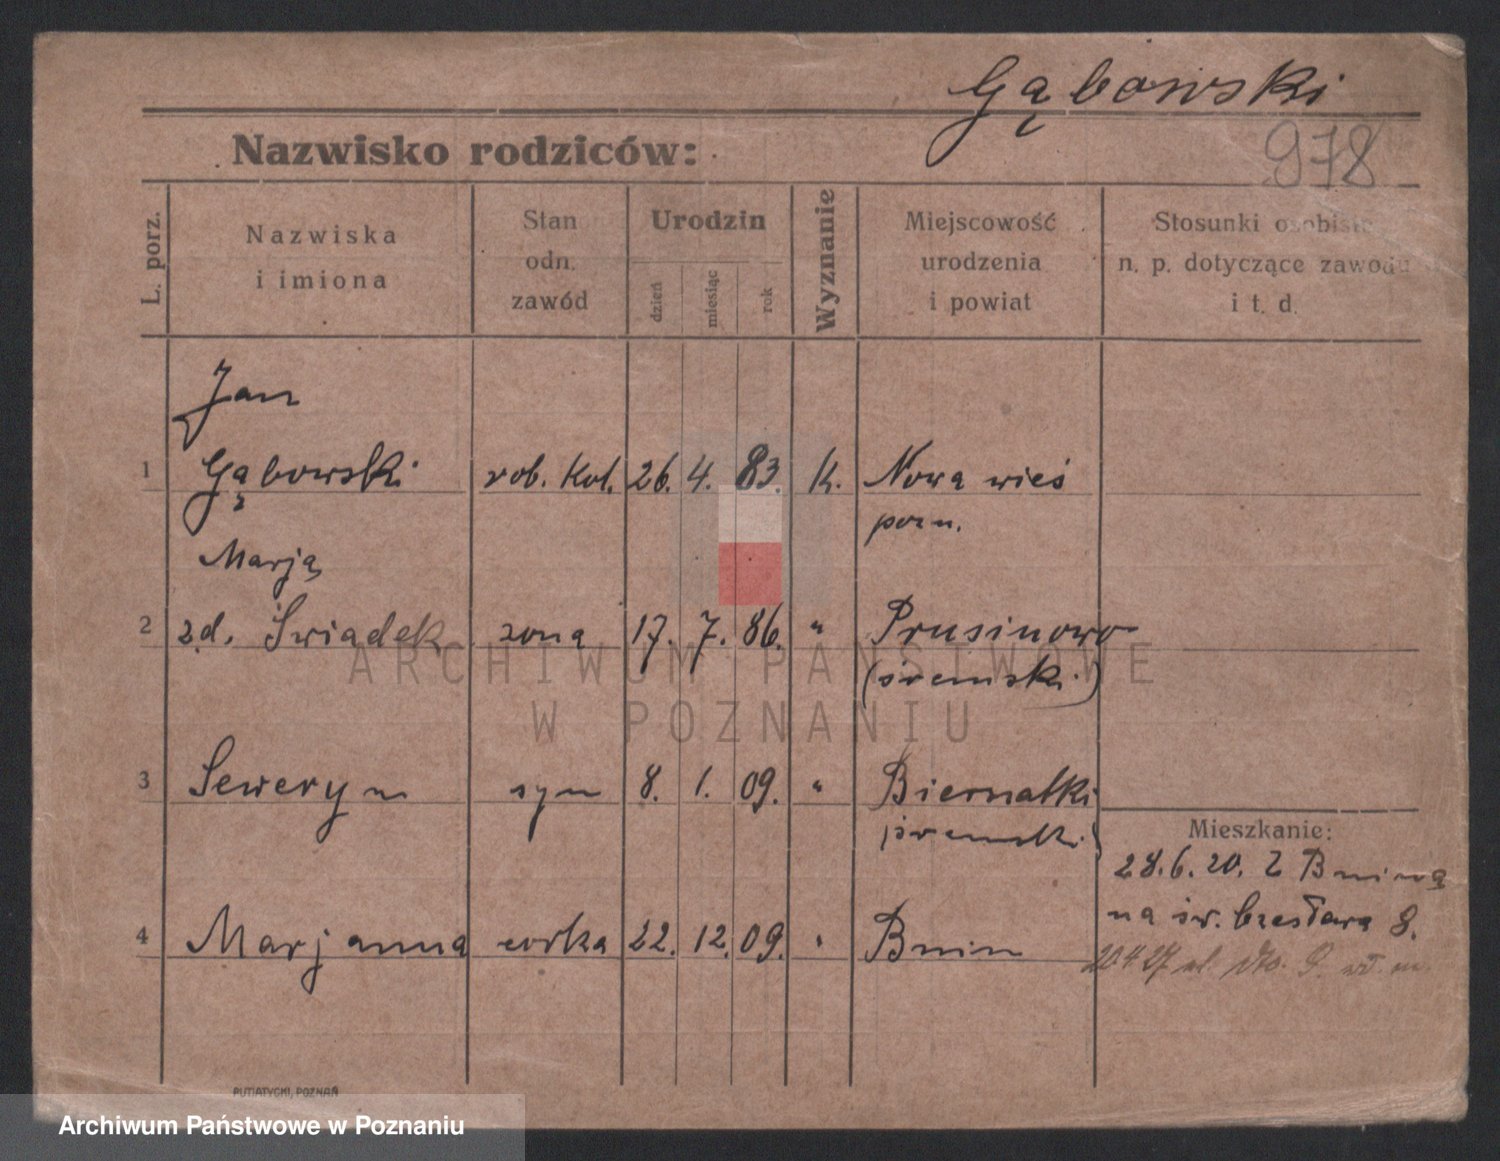 Gąbowski
Nazwisko rodziców:
978
L. porz.
Nazwiska
i imiona
Stan
odn.
zawód
Urodzin
dzień
miesiąc
rok
Wyznanie
Miejscowość
urodzenia
i powiat
Stosunki osobiste
n. p. dotyczące zawodu
i t. d.
Jan
1 Gąbowski rob. kol. 26. 4. 83. k. Nowa wieś
pozn.
Marja
2 zd. Świadek żona 17. 7. 86. " Prusinowo
(śremski)
3 Seweryn syn 8. 1. 09. " Biernatki
śremski)
Mieszkanie:
28.6.20. z Bnina
na św. Czesława 8.
4 Marjanna córka 22. 12. 09. " Bnin
20 4 27 ul. dto.
ARCHIWUM PAŃSTWOWE
W POZNANIU
PUTIATYCKI, POZNAŃ
Archiwum Państwowe w Poznaniu